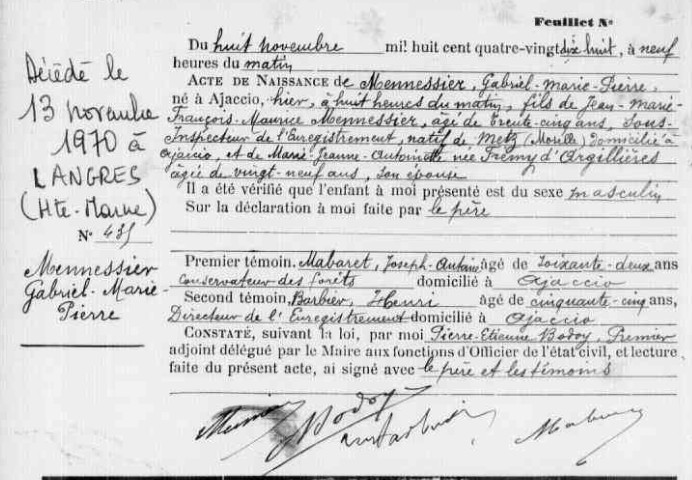 Feuillet N°
Décédé le
13 novembre
1970 à
LANGRES
(Hte-Marne)
N° 435
Mennessier
Gabriel-Marie-
Pierre
Du huit novembre mil huit cent quatre-vingt dix huit, à neuf
heures du matin
ACTE DE NAISSANCE de Mennessier, Gabriel-Marie-Pierre,
né à Ajaccio, hier, à huit heures du matin, fils de Jean-Marie-
François-Maurice Mennessier, âgé de trente-cinq ans, Sous-
Inspecteur de l'Enregistrement, natif de Metz (Moselle) domicilié à
Ajaccio, et de Marie-Jeanne-Antoinette née Fremy d'Argillières
âgée de vingt-neuf ans, son épouse
Il a été vérifié que l'enfant à moi présenté est du sexe masculin
Sur la déclaration à moi faite par le père
Premier témoin, Mabaret, Joseph-Antoine âgé de soixante-deux ans
Conservateur des forêts domicilié à Ajaccio
Second témoin, Barbier, Henri âgé de cinquante-cinq ans,
Directeur de l'Enregistrement domicilié à Ajaccio
CONSTATÉ, suivant la loi, par moi Pierre-Etienne Bodoy, Premier
adjoint délégué par le Maire aux fonctions d'Officier de l'état civil, et lecture
faite du présent acte, ai signé avec le père et les témoins
Bodoy